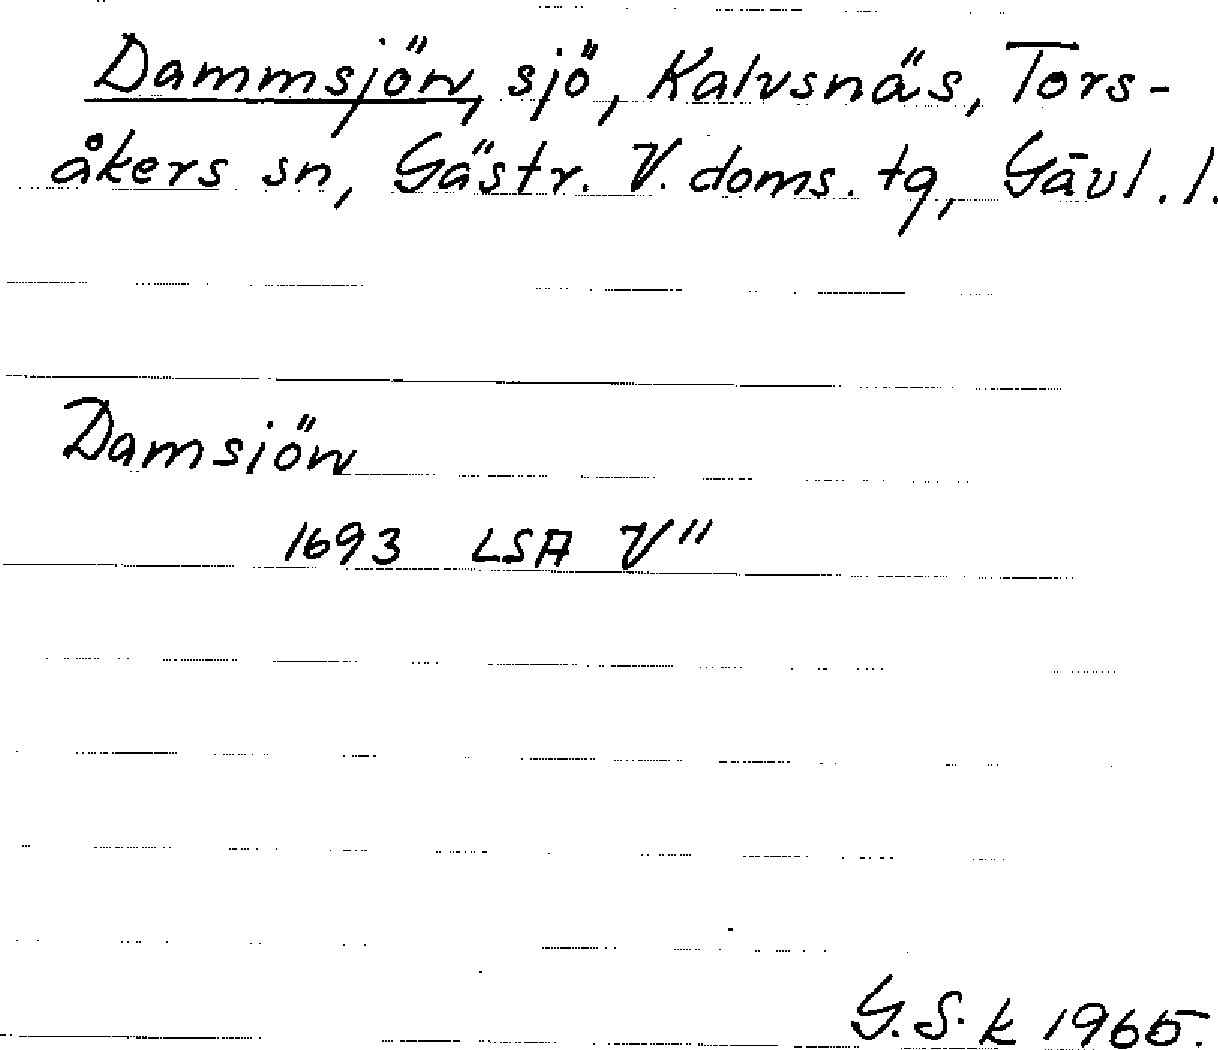 Dammsjön, sjö, Kalvsnäs, Tors-
åkers sn, Gästr. V. doms. tg, Gävl. l.
Damsiön
1693 LSA V"
G.S.k 1965.